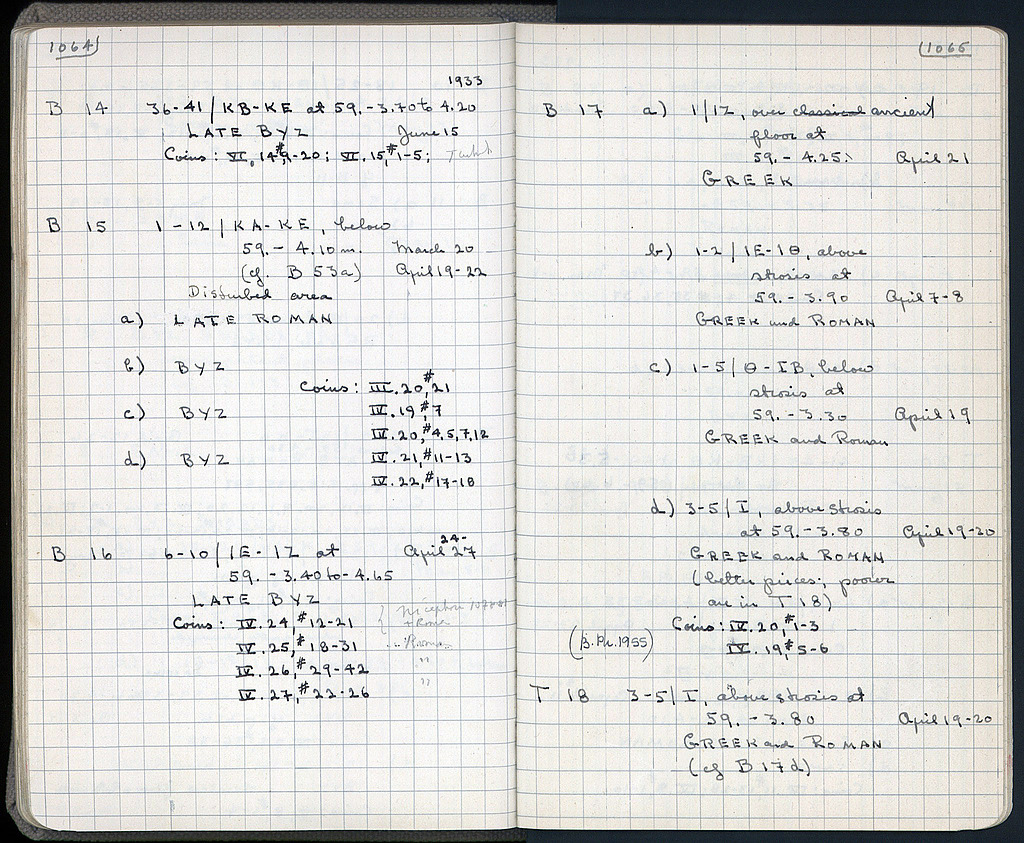 1064)
1933
B 14 36-41/KB-KE at 59.-3.70 to 4.20
LATE BYZ June 15
Coins: VI.14,#9-20; VI.15,#1-5;
B 15 1-12/KA-KE, below
59.-4.10 m. March 20
(cf. B 53a) April 19-22
Disturbed area
a) LATE ROMAN
b) BYZ
Coins: III.20,#21
c) BYZ IV.19,#7
IV.20,#4,5,7,12
d) BYZ IV.21,#11-13
IV.22,#17-18
24-
B 16 6-10/IE-IZ at April 27
59.-3.40 to -4.65
LATE BYZ
Coins: IV.24,#12-21
+ Roman
IV.25,#18-31 Roman
IV.26,#29-42 "
IV.27,#22-26 "
(1065
B 17 a) 1/IZ, over classical ancient
floor at
59.-4.25: April 21
GREEK
b) 1-2/IE-IΘ, above
strosis at
59.-3.90 April 7-8
GREEK and ROMAN
c) 1-5/Θ-IB, below
strosis at
59.-3.30 April 19
GREEK and Roman
d) 3-5/I, above strosis
at 59.-3.80 April 19-20
GREEK and ROMAN
(better pieces; poorer
are in T 18)
Coins: IV.20,#1-3
(B.Ph.1955) IV.19,#5-6
T 18 3-5/I, above strosis at
59.-3.80 April 19-20
GREEK and ROMAN
(cf B 17d)